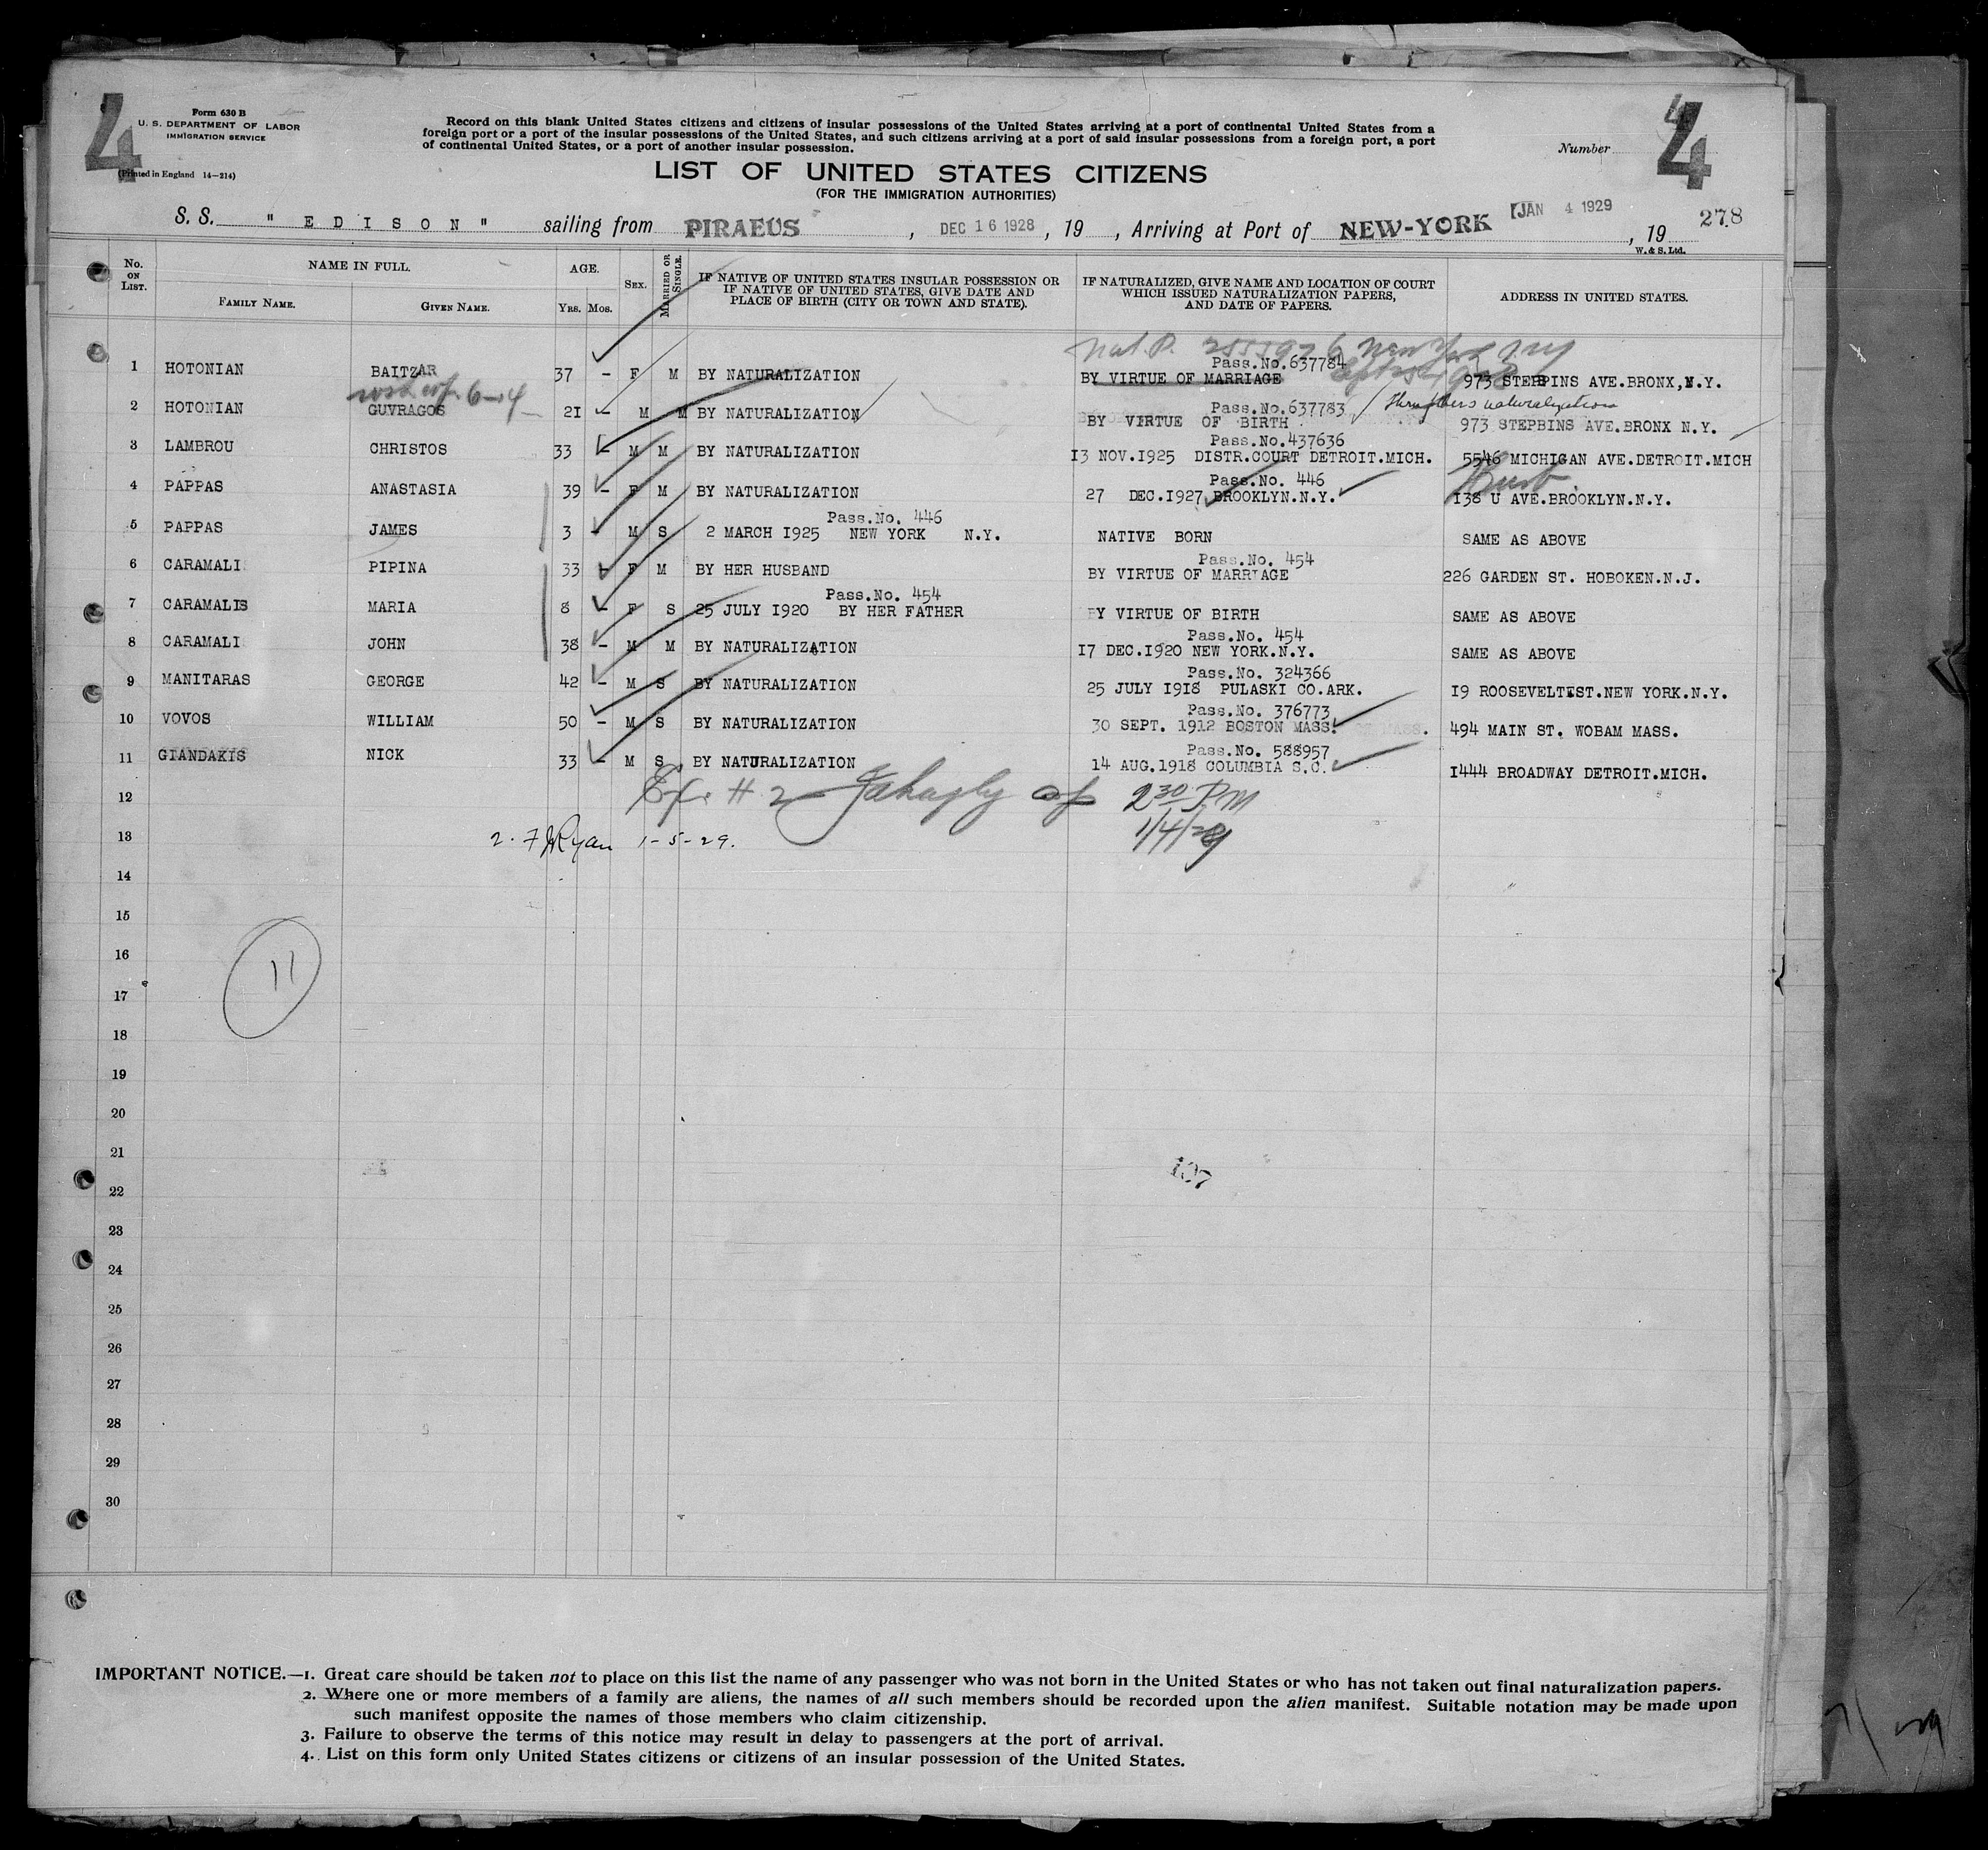 4
Form 630 B
U. S. DEPARTMENT OF LABOR
IMMIGRATION SERVICE
(Printed in England 14—214)
Record on this blank United States citizens and citizens of insular possessions of the United States arriving at a port of continental United States from a
foreign port or a port of the insular possessions of the United States, and such citizens arriving at a port of said insular possessions from a foreign port, a port
of continental United States, or a port of another insular possession.
Number 4
LIST OF UNITED STATES CITIZENS
(FOR THE IMMIGRATION AUTHORITIES)
S. S. " E D I S O N " sailing from PIRAEUS , DEC 16 1928 , 19 , Arriving at Port of NEW-YORK JAN 4 1929 , 19 278
W. & S. Ltd.
No. ON LIST. NAME IN FULL. AGE. SEX. MARRIED OR SINGLE. IF NATIVE OF UNITED STATES INSULAR POSSESSION OR IF NATIVE OF UNITED STATES, GIVE DATE AND PLACE OF BIRTH (CITY OR TOWN AND STATE). IF NATURALIZED, GIVE NAME AND LOCATION OF COURT WHICH ISSUED NATURALIZATION PAPERS, AND DATE OF PAPERS. ADDRESS IN UNITED STATES.
FAMILY NAME. GIVEN NAME. YRS. MOS.
Pass.No.637784
1 HOTONIAN BAITZAR 37 - F M BY NATURALIZATION BY VIRTUE OF MARRIAGE 973 STEBPINS AVE.BRONX,N.Y.
6-4
Pass.No.637783 Thru naturalization
2 HOTONIAN GUVRAGOS 21 - M M BY NATURALIZATION BY VIRTUE OF BIRTH 973 STEPBINS AVE.BRONX N.Y.
Pass.No.437636
3 LAMBROU CHRISTOS 33 - M M BY NATURALIZATION 13 NOV.1925 DISTR.COURT DETROIT.MICH. 5546 MICHIGAN AVE.DETROIT.MICH
Pass.No. 446
4 PAPPAS ANASTASIA 39 - F M BY NATURALIZATION 27 DEC.1927 BROOKLYN.N.Y. 138 U AVE.BROOKLYN.N.Y.
Pass.No. 446
5 PAPPAS JAMES 3 - M S 2 MARCH 1925 NEW YORK N.Y. NATIVE BORN SAME AS ABOVE
Pass.No. 454
6 CARAMALI PIPINA 33 - F M BY HER HUSBAND BY VIRTUE OF MARRIAGE 226 GARDEN ST. HOBOKEN.N.J.
Pass.No. 454
7 CARAMALIS MARIA 8 - F S 25 JULY 1920 BY HER FATHER BY VIRTUE OF BIRTH SAME AS ABOVE
Pass.No. 454
8 CARAMALI JOHN 38 - M M BY NATURALIZATION 17 DEC.1920 NEW YORK.N.Y. SAME AS ABOVE
Pass.No. 324366
9 MANITARAS GEORGE 42 - M S BY NATURALIZATION 25 JULY 1918 PULASKI CO.ARK. 19 ROOSEVELTEST.NEW YORK.N.Y.
Pass.No. 376773
10 VOVOS WILLIAM 50 - M S BY NATURALIZATION 30 SEPT. 1912 BOSTON MASS. 494 MAIN ST. WOBAM MASS.
Pass.No. 588957
11 GIANDAKIS NICK 33 - M S BY NATURALIZATION 14 AUG.1918 COLUMBIA S.C. 1444 BROADWAY DETROIT.MICH.
12 # 2 2 30 PM
13 2. Ryan 1-5-29. 1/4/29
14
15
16
11
17
18
19
20
21
107
22
23
24
25
26
27
28
29
30
IMPORTANT NOTICE.—1. Great care should be taken not to place on this list the name of any passenger who was not born in the United States or who has not taken out final naturalization papers.
2. Where one or more members of a family are aliens, the names of all such members should be recorded upon the alien manifest. Suitable notation may be made upon
such manifest opposite the names of those members who claim citizenship.
3. Failure to observe the terms of this notice may result in delay to passengers at the port of arrival.
4. List on this form only United States citizens or citizens of an insular possession of the United States.